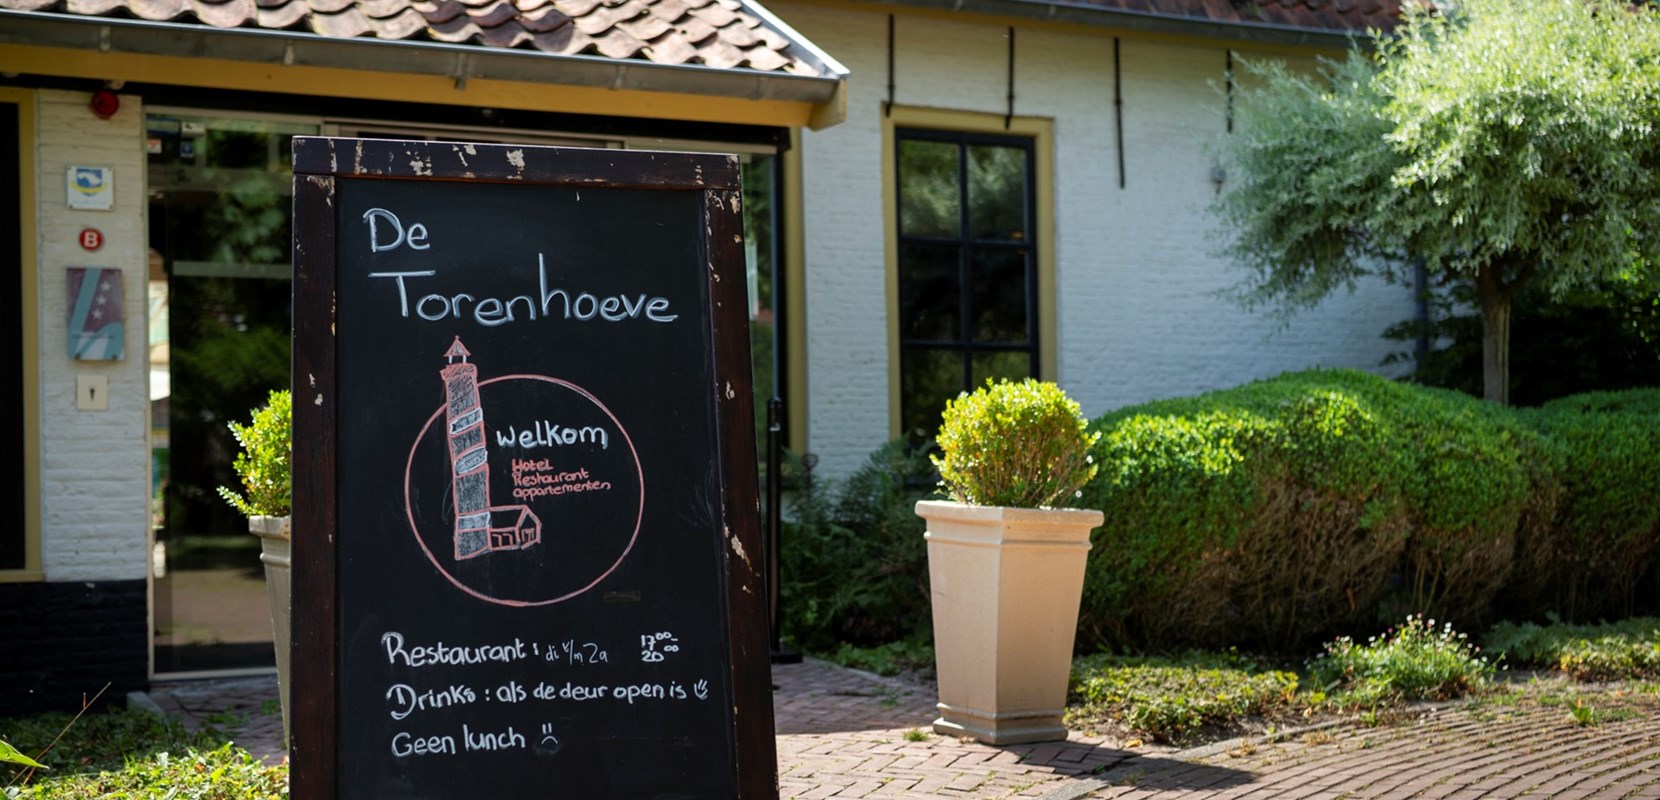 De
Torenhoeve
welkom
Hotel
Restaurant
appartementen
Restaurant : di t/m Za 17⁰⁰-
20⁰⁰
Drinks : als de deur open is
Geen lunch
B
h